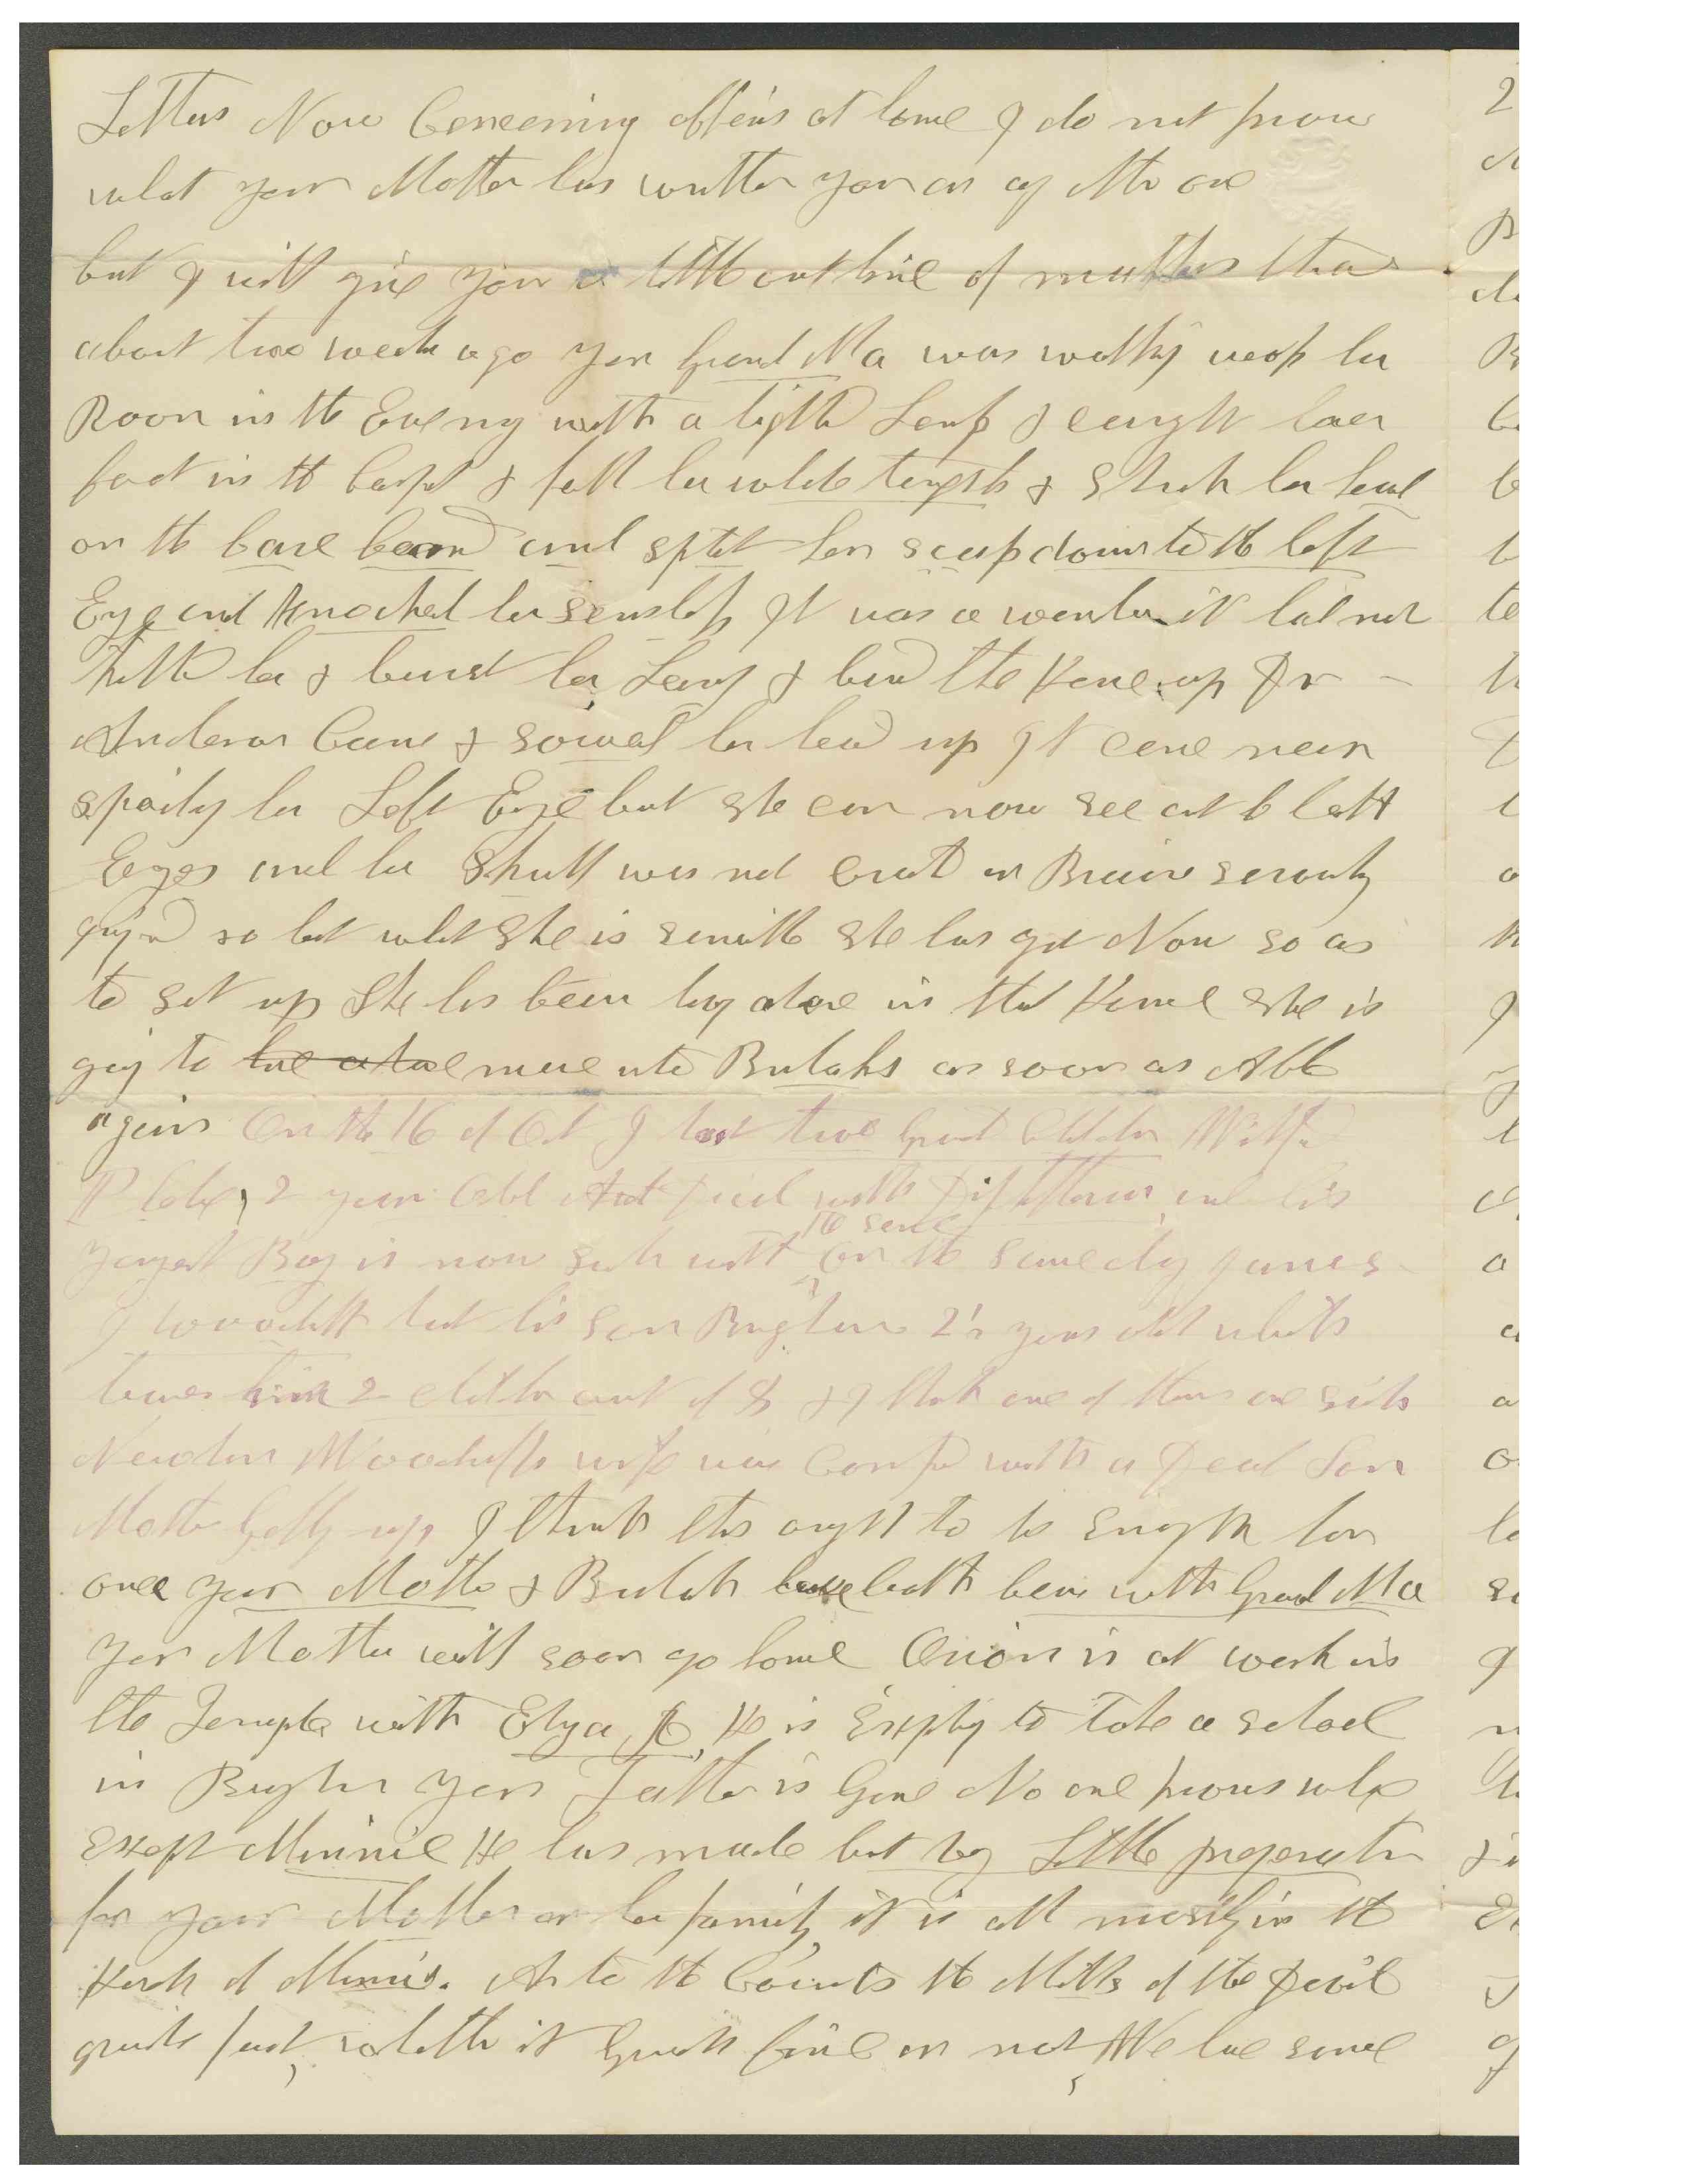 Letters Now Concerning affairs at home I do not know
what your Mother has written you as any Mr one
but I will give you a little outline of matters thare
about two weeks ago your Grand Ma was walking across her
Room in the Evening with a lighted Lamp & caught her
foot in the Carpet & fell her whole length & Struk her head
on the bare board and split her scalp down to the left
Eye and Knocked her sensless It was a wonder it had not
killed her & burst her Lamp & burnd the House up Dr
Anderson Came & sowed her head up It came near
spoiling her Left Eye but she can now see out of both
Eyes and her Skull was not Cract or Brain serously
injurd so but what she is sensible she has got Now so as
to set up She has been living alone in the House she is
going to live alone move into Bulahs as soon as Able
again On the 16 of Oct I lost two Grand Children Wilford
2 years Old And Died with Diptheria and his
yongest Boy is now sick with the same On the same day James
J Woodruff lost his son 2½ years old which
leaves him 2 children out of 8 & I think one of them are sick
Newton Woodruffs wife was Confined with a Dead Son
Mother getting up I think this ought to be Enough for
once your Mother & Bulah have both been with Grand Ma
your Mother will soon go home Orion is at work in
the Temple with He is Expecting to take a school
in your Father is Gone No one knows where
Except Minnie He has made but very Little preperation
for your Mother or her family it is all mostly in the
Hands of Minnie. As to the Courts the Mills of the Devil
grinds fast, whether it Grinds fine or not, We have some